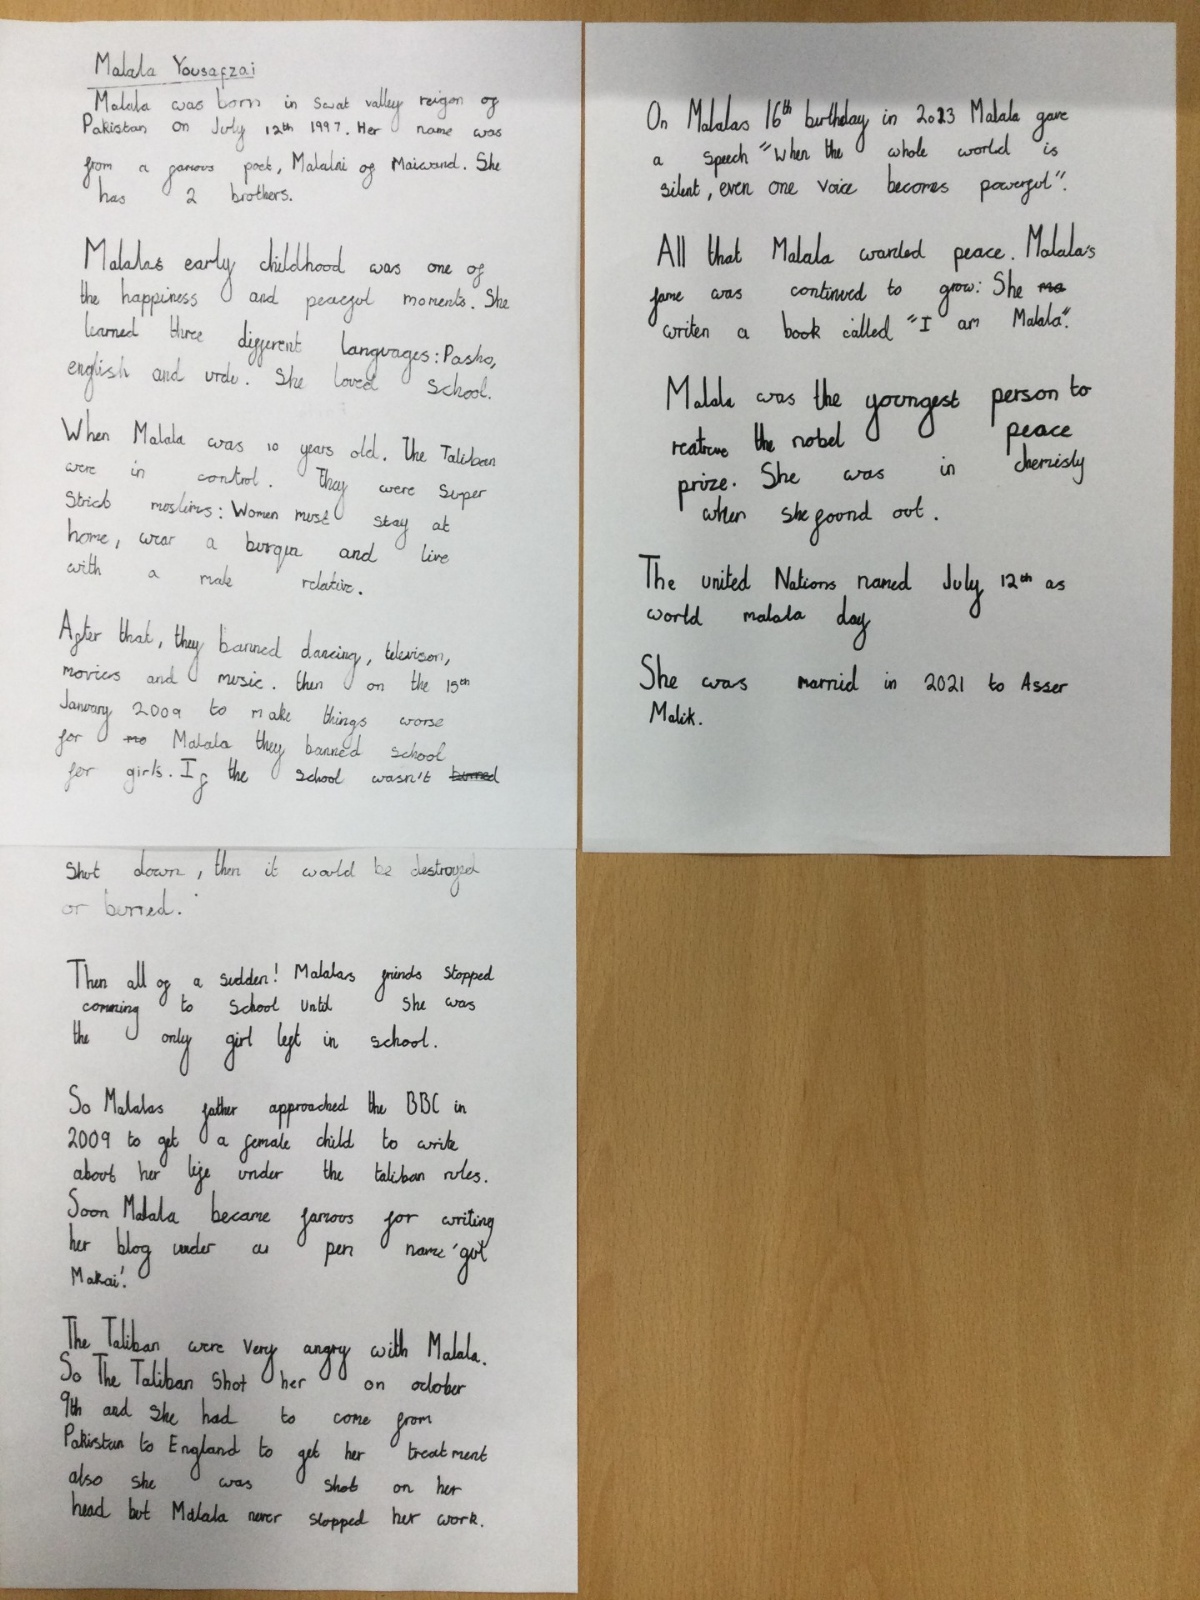 Malala Yousafzai
Malala was born in Swat valley reigon of
Pakistan on July 12th 1997. Her name was
from a famous poet, Malalai of Maiwand. She
has 2 brothers.
Malalas early childhood was one of
the happiness and peaceful moments. She
learned three different languages: Pasho,
english and urdu. She loved school.
When Malala was 10 years old. The Taliban
were in control. They were super
strict moslims: Women must stay at
home, wear a burqa and live
with a male relative.
After that, they banned dancing, televison,
movies and music. then on the 15th
January 2009 to make things worse
for Malala they banned school
for girls. If the school wasn't burned
shut down, then it would be destroyed
or burred.
Then all of a sudden! Malalas frinds stopped
comming to school until she was
the only girl left in school.
So Malalas father approached the BBC in
2009 to get a female child to write
about her life under the taliban rules.
Soon Malala became famous for writing
her blog under a pen name 'gul
Makai'.
The Taliban were very angry with Malala.
So The Taliban shot her on october
9th and she had to come from
Pakistan to England to get her treatment
also she was shot on her
head but Malala never stopped her work.
On Malalas 16th birthday in 2023 Malala gave
a speech "when the whole world is
silent, even one voice becomes powerful".
All that Malala wanted peace. Malala's
fame was continued to grow: She
writen a book called "I am Malala".
Malala was the youngest person to
the nobel peace
prize. She was in chemisty
when she found out.
The united Nations named July 12th as
world malala day
She was marrid in 2021 to Asser
Malik.